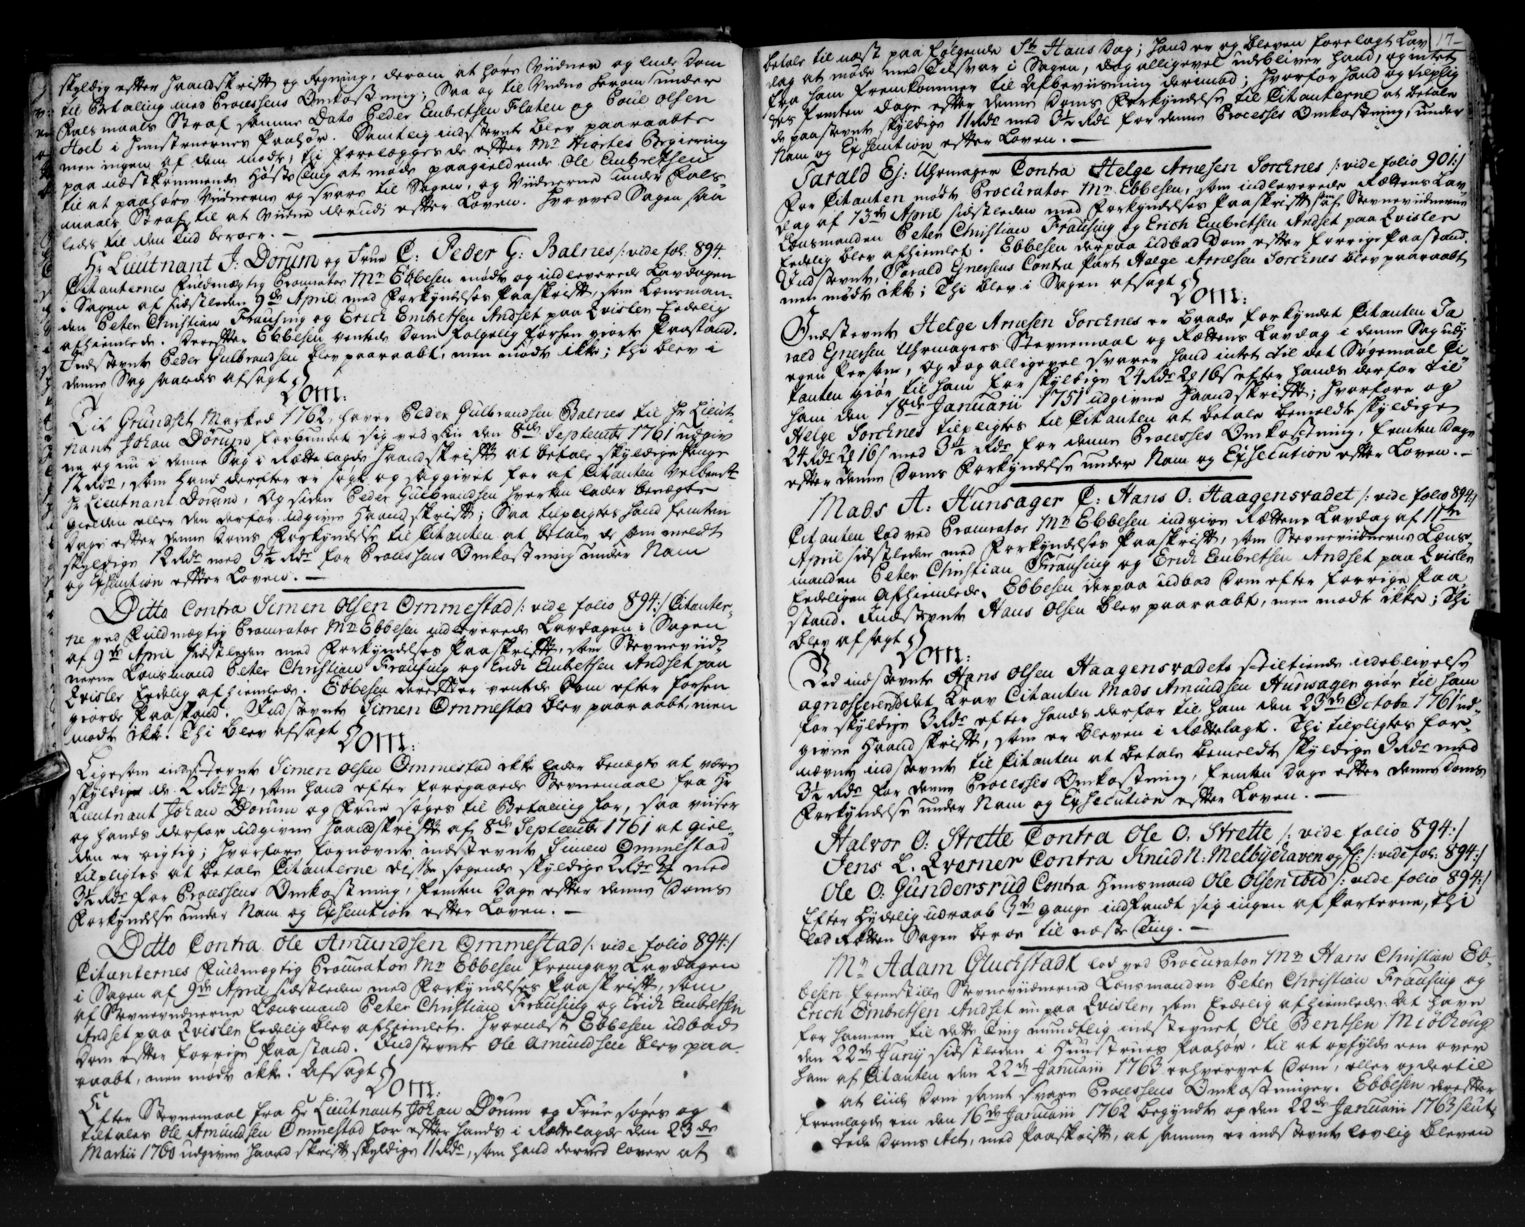 skyldig efter haandskrift og Regning, derom at høre Vidner og lide Dom
til Betaling med Processens Omkostning; Saa og til Vidne herom under
Falsmaals Straf samme Dato Peder Embretsen Floten og Poul Olsen
Hoel i Hunstruernes Paahør. Samtlig indstevnte blev paaraabte
men ingen af dem mødte; thi forelægges de efter Mr Hiortes Begiering
paa næstkommende Høste Ting at møde paagieldende Ole Embretsen
til at paahøre Vidnerne og svare til Sagen, og Vidnerne under Fals-
maals Straf til at Vidne derudi efter Loven. Hvorved Sagen saa-
leds til den Tiid beroer. —
Hr Lieutnant J: Dorum og Frue C: Peder G: Balnes /: vide fol: 894.
Citanternes Fuldmægtig Procurator Mr Ebbesen mødte og indleverede Lavdagen
i Sagen af sidstleden 9de April med Forkyndelses Paaskrift, som Lænsman-
den Peter Christian Frausing og Erich Embretsen Andset paa Qvisler Eedelig
afhiemlede. Derefter Ebbesen ventede Dom følgelig forhen giorte Paastand.
Indstevnte Peder Gulbrandsen blev paaraabt, men mødte ikke; thi blev i
denne Sag saaleds afsagt
Dom:
Til Grundset Marked 1762, haver Peder Gulbrandsen Balnes til Hr Lieut-
nant Johan Dorum forbundet sig ved sin den 8de Septembr 1761 udgiv-
ne og nu i denne Sag i Rættelagde haandskrift at betale skyldige Penge
12 Rdr, som hand derefter er søgt og saggivet for af Citanten Velbemte
Hr Lieutnant Dorum, Og siden Peder Gulbrandsen hverken lader benægte
gielden eller den derfor udgivne Haandskrift; Saa tilpligtes hand femten
Dage efter denne Doms Forkyndelse til Citanten at betale de ommeldte
skyldige 12 Rdr med 3½ Rdr for Processens Omkostning under Nam
og Exsecution efter Loven. —
Ditto Contra Simen Olsen Ommestad /: vide folio 894:/ Citanter-
ne ved Fuldmægtig Procurator Mr Ebbesen indleverede Lavdagen i Sagen
af 9de April sidstleden med Forkyndelses Paaskrift, som Stevnevid-
nerne Lænsmand Peter Christian Frausing og Erich Embretsen Andset paa
Qvisler Eedelig afhiemlede. Ebbesen derefter ventede Dom efter forhen
giorde Paastand. Indstevnte Simen Ommestad blev paaraabt, men
mødte ikke. Thi blev afsagt
Dom:
Ligesom indstevnte Simen Olsen Ommestad ikke lader benægte at være
skyldig de 2 Rdr, som hand efter foregaaede Stevnemaal fra Hr
Lieutnant Johan Dorum og Frue søges til Betaling for, saa viiser
og hands derfor udgivne haandskrift af 8de Septembr 1761 at giel-
den er rigtig; hvorfore bemeldte indstevnte Simen Ommestad
tilpligtes at betale Citanterne disse søgende skyldige 2 Rdr med
3½ Rdr for Processens Omkostning, femten Dage efter denne Doms
Forkyndelse under Nam og Exsecution efter Loven. —
Ditto Contra Ole Amundsen Ommestad /: vide folio 894:/
Citanternes Fuldmægtig Procurator Mr Ebbesen fremgav Lavdagen
i Sagen af 9de April sidstleden med Forkyndelses Paaskrift, som
af Stevnevidnerne Lænsmand Peter Christian Frausing og Erich Embretsen
Andset paa Qvisler Eedelig blev afhiemlet. Hvornæst Ebbesen udbad
Dom efter forrige Paastand. Indstevnte Ole Amundsen blev paa-
raabt, men mødte ikke. Afsagt
Dom:
Efter Stevnemaal fra Hr Lieutnant Johan Dorum og Frue søges og
tiltales Ole Amundsen Ommestad for efter hands i Rættelagde den 23de
Martii 1760 udgivne haandskrift skyldige 11 Rdr, som hand derved lover at
17
betale til næst paa følgende St Hans Dag; hand er og bleven forelagt Lav-
dag at møde med Tilsvar i Sagen, dog alligevel udebliver hand, og intet
fra ham fremkommer til Afbeviisning derimod; hvorfor hand og tilplig-
tes femten Dage efter denne Doms Forkyndelse til Citanterne at betale
de paastevnte skyldige 11 Rdr med 3½ Rdr for denne Processes Omkostning, under
Nam og Exsecution efter Loven. —
Tarald Ej: Uhrmager Contra Helge Arnesen Sorchnes /: vide folio 901:/
For Citanten mødte Procurator Mr Ebbesen, som indleverede Rættens Lav-
dag af 13de April sidstleden med Forkyndelses Paaskrift, som af Stevnevidnerne
Lænsmanden Peter Christian Frausing og Erich Embretsen Andset paa Qvisler
Eedelig blev afhiemlet. Ebbesen derpaa udbad Dom efter forrige Paastand.
Indstevnte, Tarald Ejnersens Contra Part Helge Arnesen Sorchnes blev paaraabt
men mødte ikke; Thi blev i Sagen afsagt
Dom:
Indstevnte Helge Arnesen Sorchnes er baade forkyndet Citanten Ta-
rald Ejnersen Uhrmagers Stevnemaal og Rættens Lavdag i denne Sag udj
egen Person, og dog alligevel svarer hand intet til det Søgemaal Ci-
tanten giør til ham for skyldige 24 Rdr 16 s efter hands derfor til
ham den 18de Januarii 1751 udgivne haandskrift; hvorfore og
Helge Sorchnes tilpligtes til Citanten at betale bemeldte skyldige
24 Rdr 16 s med 3½ Rdr for denne Processes Omkostning, femten Dage
efter denne Doms Forkyndelse under Nam og Exsecution efter Loven. —
Mads A: Hunsager C: Hans O: Haagensvadet /: vide folio 894:/
Citanten lod ved Procurator Mr Ebbesen indgive Rættens Lavdag af 11te
April sidstleden med Forkyndelses Paaskrift, som Stevnevidnerne Læns-
manden Peter Christian Frausing og Erich Embretsen Andset paa Qvisler
Eedeligen Afhiemlede. Ebbesen derpaa udbad Dom efter forrige Paa-
stand. Indstevnte Hans Olsen blev paaraabt, men mødte ikke; Thi
blev afsagt
Dom:
Ved indstevnte Hans Olsen Haagensvadets stiltiende udeblivelse
agnosseres det Krav Citanten Mads Amundsen Hunsager giør til ham
for skyldige 3 Rdr efter hands derfor til ham den 23de Octobr 1761 ud-
givne haandskrift, som er bleven i Rættelagt. Thi tilpligtes for-
nævnte indstevnte til Citanten at betale bemeldte skyldige 3 Rdr med
3½ Rdr for denne Processes Omkostning, femten Dage efter denne Doms
Forkyndelse under Nam og Exsecution efter Loven. —
Halvor O: Strette Contra Ole O. Strette /: vide folio 894:/
Jens L. Qverner Contra Knud N. Melbyhaven og /: vide fol: 894:/
Ole O. Gundersrud Contra Huusmand Ole Olsen ibid /: vide folio 894:/
Efter Lydelig udraab 3de gange indfandt sig ingen af Parterne, thi
lod Rætten Sagen beroe til næste Ting. —
Mr Adam Gluckstadt lod ved Procurator Mr Hans Christian Eb-
besen fremstille Stevnevidnerne Lænsmanden Peter Christian Frausing og
Erich Embretsen Andset paa Qvisler, som Eedelig afhiemlede at have
for hannem til dette Ting mundtlig indstevnet Ole Bentsen Miölhoug
den 22de Junij sidstleden i Hunstrues Paahør, til at opfylde een over
ham af Citanten den 22de Januarii 1763 erhvervet Dom, eller og dertil
at lide Dom samt svare Processens Omkostninger. Ebbesen derefter
fremlagde een den 16de Januarii 1762 begyndt og den 22de Januarii 1763 slut-
tede Doms Act, med Paaskrift, at samme er indstevnte lovlig bleven